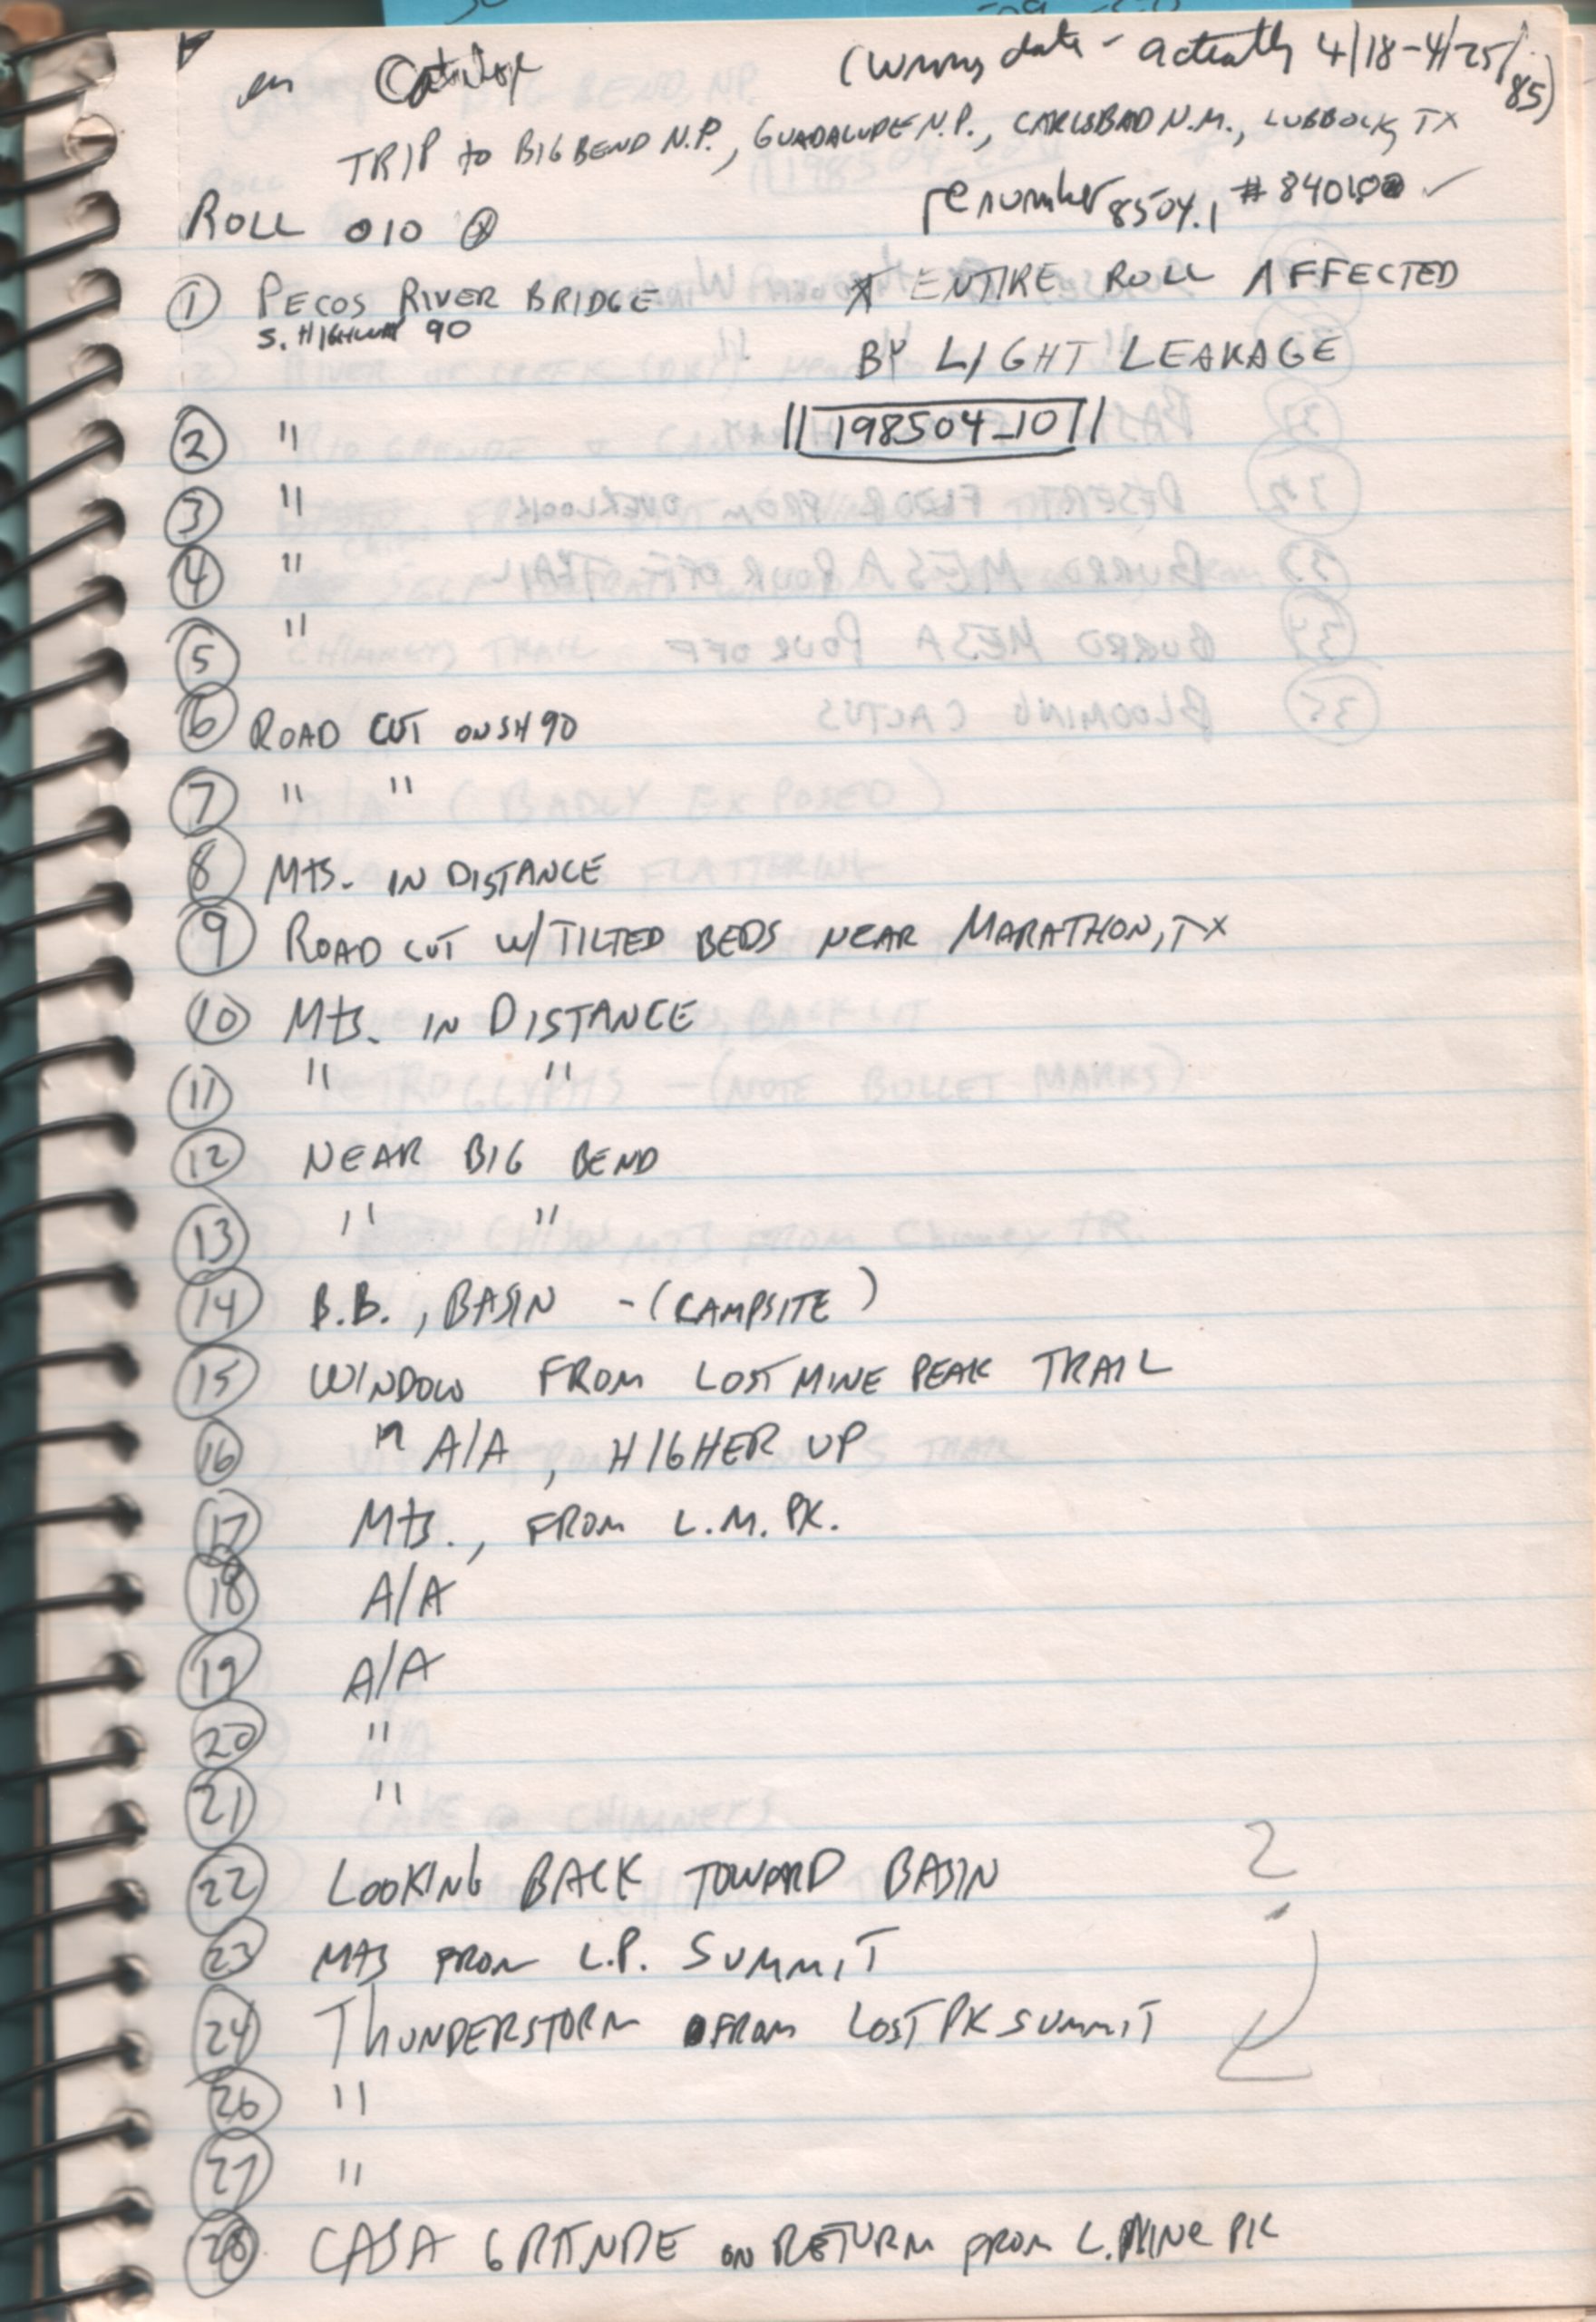 on Catalog
(Wrong date - actually 4/18-4/25/85)
TRIP to BIG BEND N.P., GUADALUPE N.P., CARLSBAD N.M., LUBBOCK, TX
renumber 8504.1 #840100 ✓
ROLL 010 ⊗
① PECOS RIVER BRIDGE
S. HIGHWAY 90
* ENTIRE ROLL AFFECTED
BY LIGHT LEAKAGE
|| 198504_10 ||
② "
③ "
④ "
⑤ "
⑥ ROAD CUT ON SH 90
⑦ " "
⑧ Mts. IN DISTANCE
⑨ ROAD CUT W/TILTED BEDS NEAR MARATHON, TX
⑩ Mts. IN DISTANCE
⑪ " "
⑫ NEAR BIG BEND
⑬ " "
⑭ B.B., BASIN - (CAMPSITE)
⑮ WINDOW FROM LOST MINE PEAK TRAIL
⑯ " A/A, HIGHER UP
⑰ Mts., FROM L.M. PK.
⑱ A/A
⑲ A/A
⑳ "
㉑ "
㉒ LOOKING BACK TOWARD BASIN ?
㉓ Mts FROM L.P. SUMMIT
㉔ THUNDERSTORM FROM LOST PK SUMMIT
㉖ "
㉗ "
㉘ CASA GRANDE ON RETURN FROM L. MINE PK